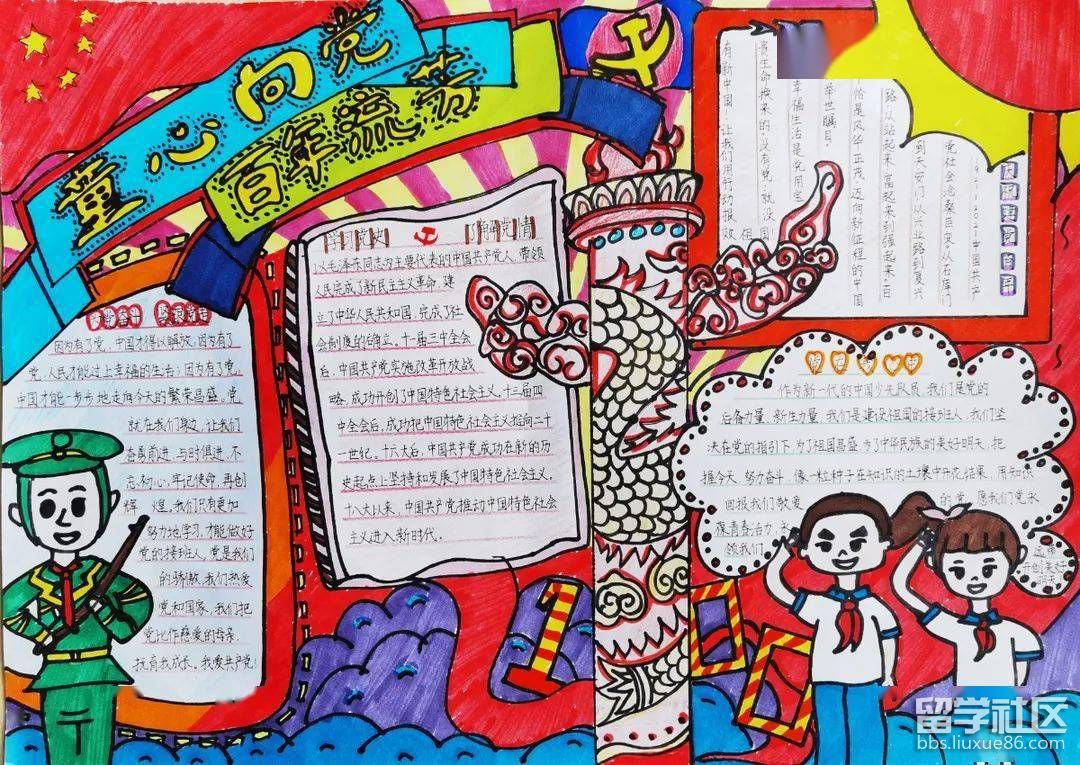 童心向党
百年流芳
因为有了党，中国才得以解放，因为有了
党，人民才能过上幸福的生活；因为有了党，
中国才能一步步地走向今天的繁荣昌盛。党
就在我们身边，让我们
奋勇前进，与时俱进，不
忘初心，牢记使命，再创
辉煌，我们只有更加
努力地学习，才能做好
党的接班人，党是我们
的骄傲，我们热爱
党和国家，我们把
党比作慈爱的母亲，
抚育我成长。我爱共产党！
学习党史 了解党情
以毛泽东同志为主要代表的中国共产党人，带领
人民完成了新民主主义革命，建
立了中华人民共和国，完成了社
会制度的确立，十一届三中全会
后，中国共产党实施改革开放战
略，成功开创了中国特色社会主义，十三届四
中全会后，成功把中国特色社会主义推向二十
一世纪，十六大后，中国共产党成功在新的历
史起点上坚持和发展了中国特色社会主义。
十八大以来，中国共产党推动中国特色社会
主义进入新时代。
1921-2021中国共产
党仕全沧桑巨变，从石库门
到天安门，从兴业路到复兴
路，从站起来，富起来到强起来，百
恰是风华正茂，迈向新征程的中国
举世瞩目。
幸福生活是党用宝
贵生命换来的，没有党，就没
有新中国！让我们用行动报效
祖国！
作为新一代的中国少先队员，我们是党的
后备力量，新生力量，我们是建设祖国的接班人，我们坚
决在党的指引下，为了祖国昌盛，为了中华民族的美好明天，把
握今天，努力奋斗，像一粒种子在知识的土壤中开花结果，用知识
回报我们敬爱的党，愿我们党永
葆青春活力，永
领我们
100
留学社区
bbs.liuxue86.com